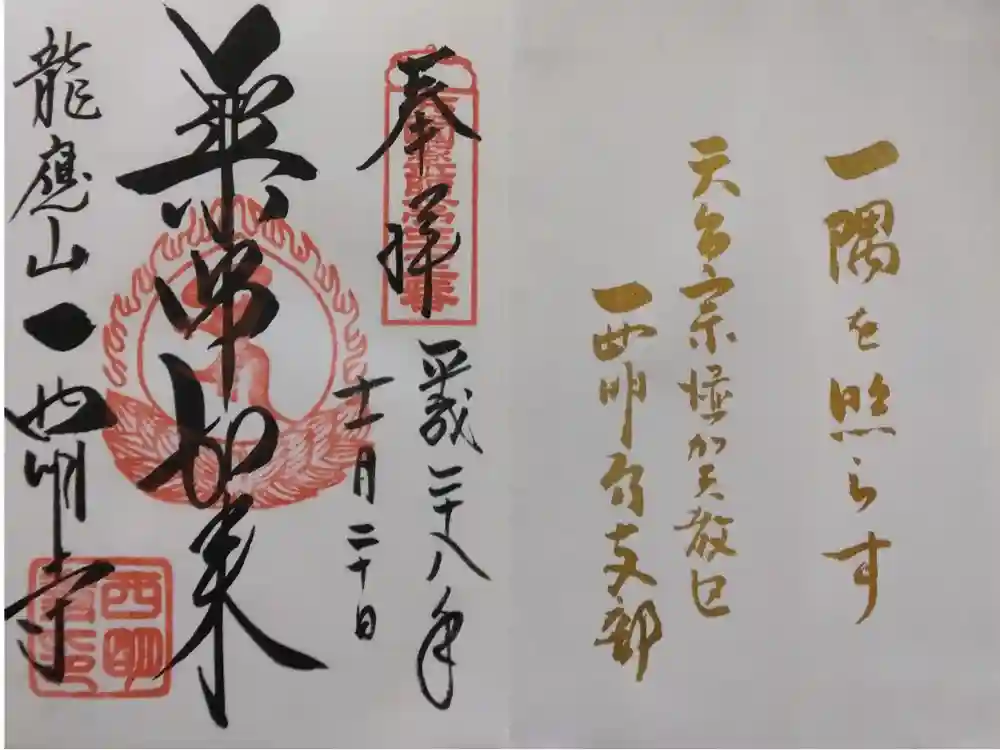 一隅を照らす
天台宗滋賀教区
西明寺支部
奉拝
平成二十八年
十一月二十日
薬師如来
龍應山西明寺
西明